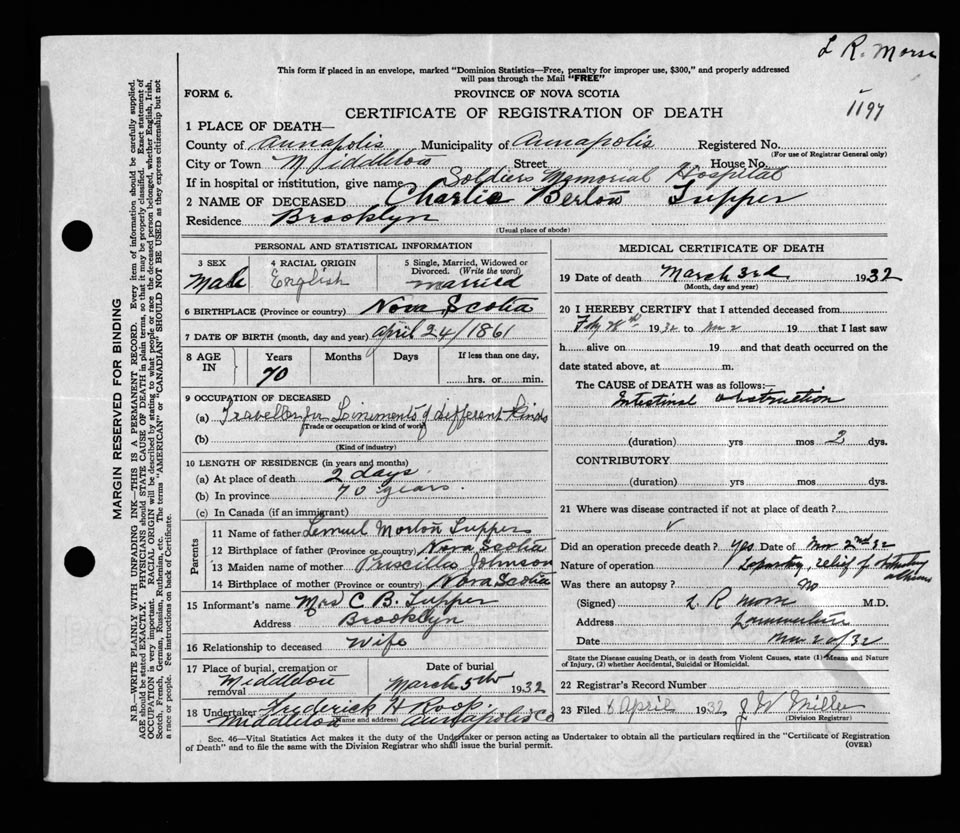 L R. Morse
This form if placed in an envelope, marked "Dominion Statistics—Free, penalty for improper use, $300," and properly addressed
will pass through the Mail "FREE"
FORM 6.
PROVINCE OF NOVA SCOTIA
1197
CERTIFICATE OF REGISTRATION OF DEATH
1 PLACE OF DEATH—
County of Annapolis Municipality of Annapolis Registered No.
(For use of Registrar General only)
City or Town Middleton Street House No.
If in hospital or institution, give name Soldiers Memorial Hospital
2 NAME OF DECEASED Charlie Berton Tupper
Residence Brooklyn
(Usual place of abode)
PERSONAL AND STATISTICAL INFORMATION
3 SEX
Male
4 RACIAL ORIGIN
English
5 Single, Married, Widowed or
Divorced. (Write the word)
Married
6 BIRTHPLACE (Province or country) Nova Scotia
7 DATE OF BIRTH (month, day and year) April 24/1861
8 AGE
IN
Years
70
Months
Days
If less than one day,
hrs. or min.
9 OCCUPATION OF DECEASED
(a) Traveller for Liniments of different kinds
(Trade or occupation or kind of work)
(b)
(Kind of industry)
10 LENGTH OF RESIDENCE (in years and months)
(a) At place of death 2 days.
(b) In province 70 years.
(c) In Canada (if an immigrant)
Parents
11 Name of father Lemuel Morton Tupper
12 Birthplace of father (Province or country) Nova Scotia
13 Maiden name of mother Priscilla Johnson
14 Birthplace of mother Nova Scotia
15 Informant's name Mrs C B. Tupper
Address Brooklyn
16 Relationship to deceased Wife
17 Place of burial, cremation or
removal Middleton
Date of burial
March 5th 1932
18 Undertaker Frederick H Roop.
(Name and address) Middleton Annapolis Co
MEDICAL CERTIFICATE OF DEATH
19 Date of death March 3rd 1932
(Month, day and year)
20 I HEREBY CERTIFY that I attended deceased from
1932 to Mar 2 19 that I last saw
h alive on 19 and that death occurred on the
date stated above, at m.
The CAUSE of DEATH was as follows:—
Intestinal obstruction
(duration) yrs mos 2 dys.
CONTRIBUTORY
(duration) yrs mos dys.
21 Where was disease contracted if not at place of death?
Did an operation precede death? Yes Date of Mar 2nd 32
Nature of operation relief of
Was there an autopsy? No
(Signed) L R Morse M.D.
Address Lawrencetown
Date /32
State the Disease causing Death, or in death from Violent Causes, state (1) Means and Nature
of Injury, (2) whether Accidental, Suicidal or Homicidal.
22 Registrar's Record Number
23 Filed 6 April 1932 J W Miller
(Division Registrar)
Sec. 46—Vital Statistics Act makes it the duty of the Undertaker or person acting as Undertaker to obtain all the particulars required in the "Certificate of Registration
of Death" and to file the same with the Division Registrar who shall issue the burial permit.
(OVER)
MARGIN RESERVED FOR BINDING
N.B.—WRITE PLAINLY WITH UNFADING INK—THIS IS A PERMANENT RECORD. Every item of information should be carefully supplied.
AGE should be stated EXACTLY. PHYSICIANS should STATE CAUSE OF DEATH in plain terms, so that it may be properly classified. Exact statement of
OCCUPATION is very important. RACIAL ORIGIN will be described by stating to what people or race the deceased person belonged, whether English, Irish,
Scotch, French, German, Russian, Ruthenian, etc. The terms "AMERICAN" or "CANADIAN" SHOULD NOT BE USED as they express citizenship but not
a race or people. See instructions on back of Certificate.